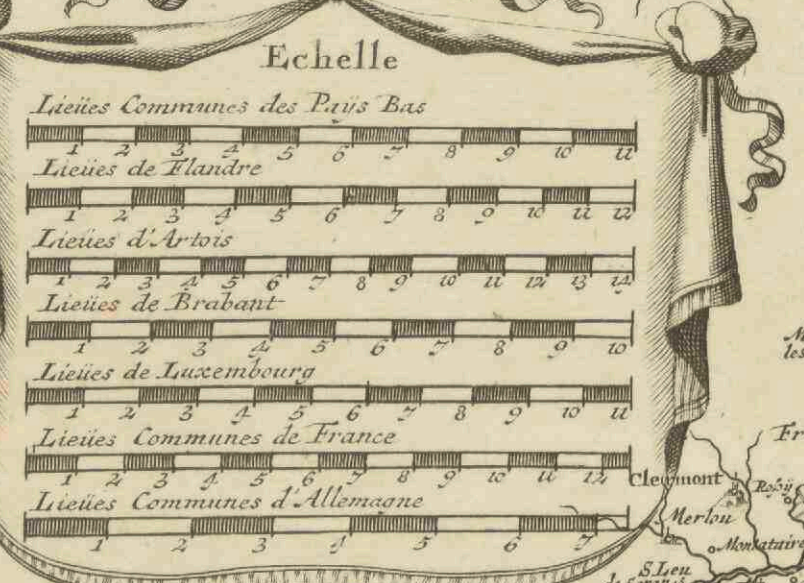 Echelle
Lieües Communes des Païis Bas
1 2 3 4 5 6 7 8 9 10 11
Lieües de Flandre
1 2 3 4 5 6 7 8 9 10 11 12
Lieües d'Artois
1 2 3 4 5 6 7 8 9 10 11 12 13 14
Lieües de Brabant
1 2 3 4 5 6 7 8 9 10
Lieües de Luxembourg
1 2 3 4 5 6 7 8 9 10 11
Lieües Communes de France
1 2 3 4 5 6 7 8 9 10 11 12
Fr
Clermont
Lieües Communes d'Allemagne
1 2 3 4 5 6 7
Merlou
Montataire
S. Leu